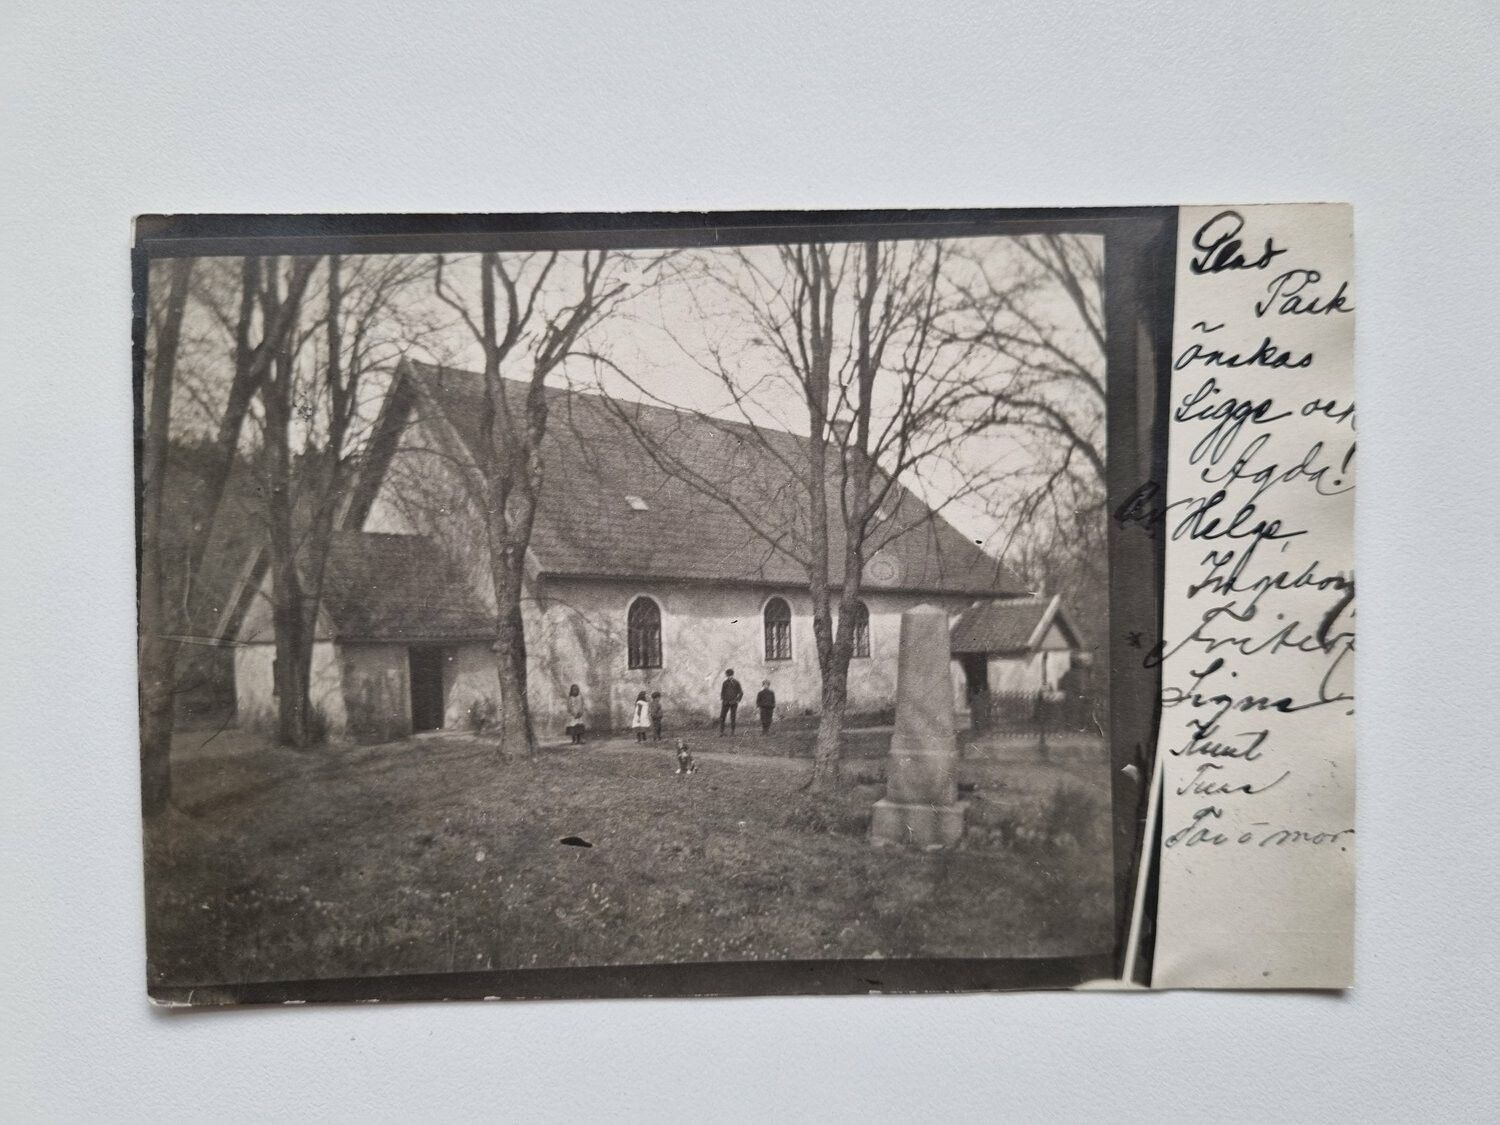 Glad
Påsk
önskas
Sigge och
Agda!
Av Helge,
Ingeborg
Frideof
Signe.
Knut
Ture
Far o mor.